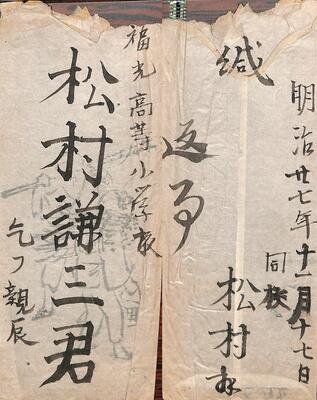 福光高等小学校
松村謙三君
乞フ親展
緘
返事
明治廿七年十二月十七日
同校
松村